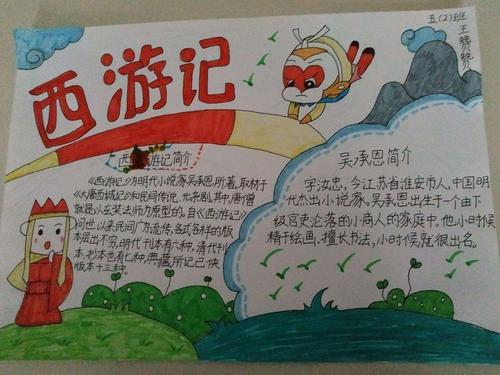 五(2)班
王赞赞
西游记
西游记简介
《西游记》为明代小说家吴承恩所著,取材于
《大唐西域记》和民间传说、元杂剧,其中唐僧
就是以玄奘法师为原型的。自《西游记》
问世以来民间广为流传,各式各样的版
本层出不穷,明代刊本有六种,清代刊
本、抄本也有七种,典藏所记已佚
版本十三种。
吴承恩简介
字汝忠,今江苏省淮安市人,中国明
代杰出小说家,吴承恩出生于一个由下
级官吏沦落的小商人的家庭中,他小时候
精于绘画,擅长书法,小时候就很出名。